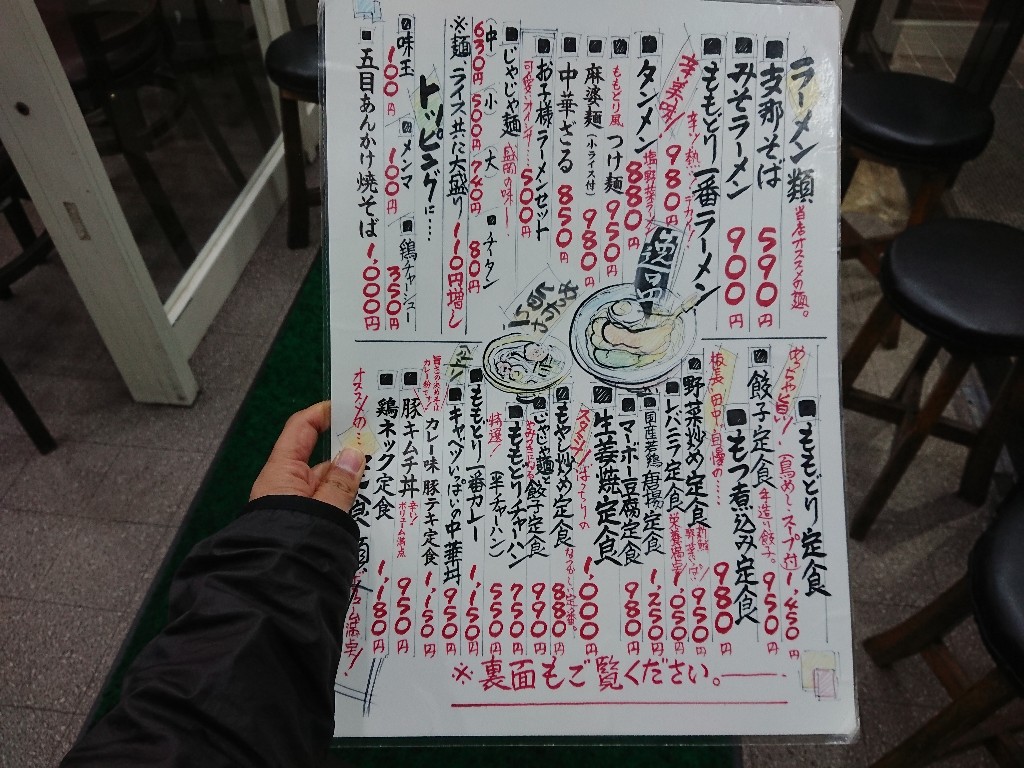 ラーメン類 当店オススメの麺。
支那そば 590円
みそラーメン 900円
ももどり一番ラーメン
辛美味! 辛!熱! 980円
タンメン 880円
ももどり風 つけ麺 950円
麻婆麺(小ライス付) 980円
中華ざる 850円
お子様ラーメンセット 500円
じゃじゃ麺 盛岡の味!
(中) 630円 (小) 500円 (大) 740円 チータン 80円
※麺 ライス共に大盛り 110円増し
トッピングに…
味玉 100円 メンマ 100円 鶏チャーシュー 350円
五目あんかけ焼そば 1,000円
ももどり定食
めっちゃ旨い! (鳥めし、スープ付) 1,450円
餃子定食 手造り餃子。 950円
もつ煮込み定食
板長 田中 自慢の…… 980円
野菜炒め定食 950円
レバニラ定食 栄養満点! 1,050円
国産若鶏唐揚定食 1,250円
マーボー豆腐定食 980円
生姜焼定食 1,000円
スタミナばっちりの
もやし炒め定食 880円
じゃじゃ麺と餃子定食 990円
ももどりチャーハン 750円
特選! (半チャーハン) 550円
ももどり一番カレー 1,150円
キャベツいっぱいの中華丼 950円
カレー味 豚テキ定食 1,150円
豚キムチ丼 辛!ボリューム満点 950円
鶏ネック定食 1,180円
オススメの…
※裏面もご覧ください。